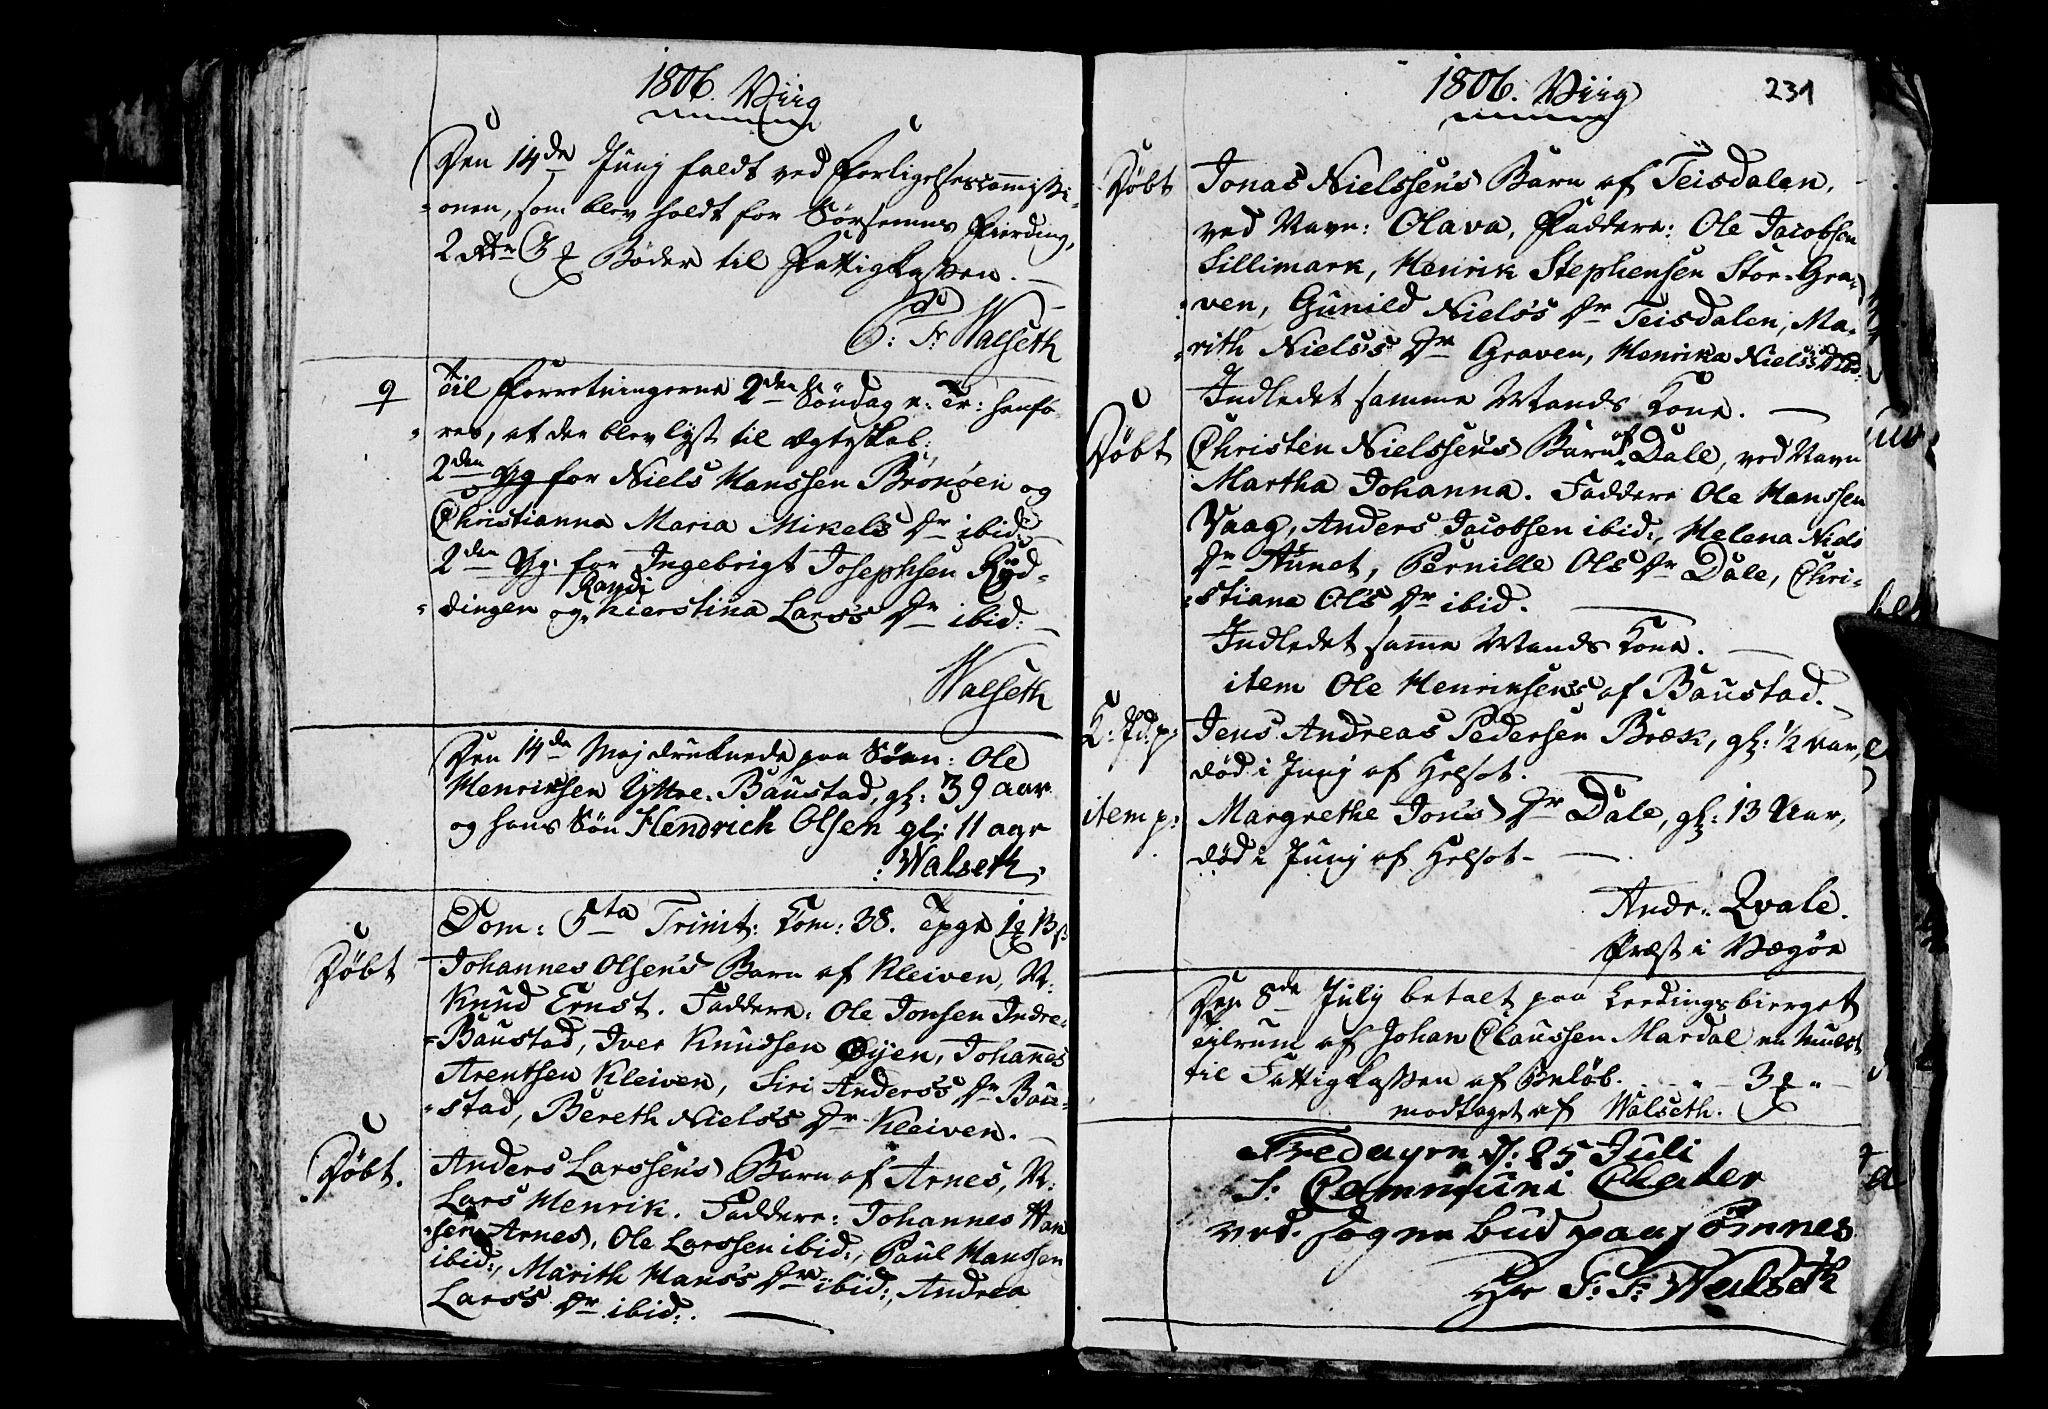 1806. Viig
Den 14de Junj faldt ved Forligelsescommissi-
onen, som blev holdt for Sørsemnes Fierding,
2 Bøder til Fattigkassen.
Walseth
9
Til Forretningerne 2den Søndag e: Tr: henfø
res, at der blev lyst til Ægteskab:
2den Gg for Niels Hanssen Brønøen og
Christianna Maria Mikels Dr ibid:
2den Gg. for Ingebrigt Josephsen Ryd-
Randi
dingen og Kierstina Lars's Dr ibid:
Walseth
Den 14de Maj druknede paa Søen: Ole
Henriksen Yttre-Baustad, gl: 39 aar
og hans Søn Hendrich Olsen gl: 11 aar
Walseth.
Dom: 5ta Trinit: Kom: 38.
Døbt
Johannes Olsens Barn af Kleiven, N:
Knud Ernst. Faddere: Ole Jonsen Indre-
Baustad, Iver Knudsen Øyen, Johannes
Arentsen Kleiven, Siri Anders's Dr Bau-
stad, Bereth Niels's Dr Kleiven.
Døbt.
Anders Larssens Barn af Arnes, N:
Lars Henrik. Faddere: Johannes Han
sen Arnes, Ole Larssen ibid:, Paul Hanssen
ibid:, Marith Hans's Dr ibid:, Andrea
Lars's Dr ibid:.
1806. Viig
231
Døbt
Jonas Nielssens Barn af Teisdalen,
ved Navn: Olava, Faddere: Ole Jacobsen
Lillimark, Henrik Stephensen Stor-Gra-
ven, Gunild Niels's Dr Teisdalen, Ma-
rith Niels's Dr Graven, Henrika Niels's Dr ibid:
Indledet samme Mands Kone.
Døbt
Christen Nielssens Barn af Dale, ved Navn
Martha Johanna. Faddere Ole Hanssen
Vaag, Anders Jacobsen ibid:, Helena Niels
Dr Aunet, Pernille Ols Dr Dale, Chri-
stiana Ols Dr ibid.
Indledet samme Mands Kone.
item Ole Henriksens af Baustad.
K: Jd: p:
Jens Andreas Pedersen Bræk, gl: 1/2 Aar,
død i Junj af Helsot.
item p:
Margrethe Jons Dr Dale, gl: 13 Aar,
død i Junj af Helsot.
Andr. Qvale.
Præst i Vægøe
Den 8de July betalt paa Ledingsbierget
af Johan Claussen Mardal en Mulct
til Fattigkassen af Beløb. 3
modtaget af Walseth.
Fredagen d: 25 Juli
ved Sogne bud paa Sømnes
Walseth